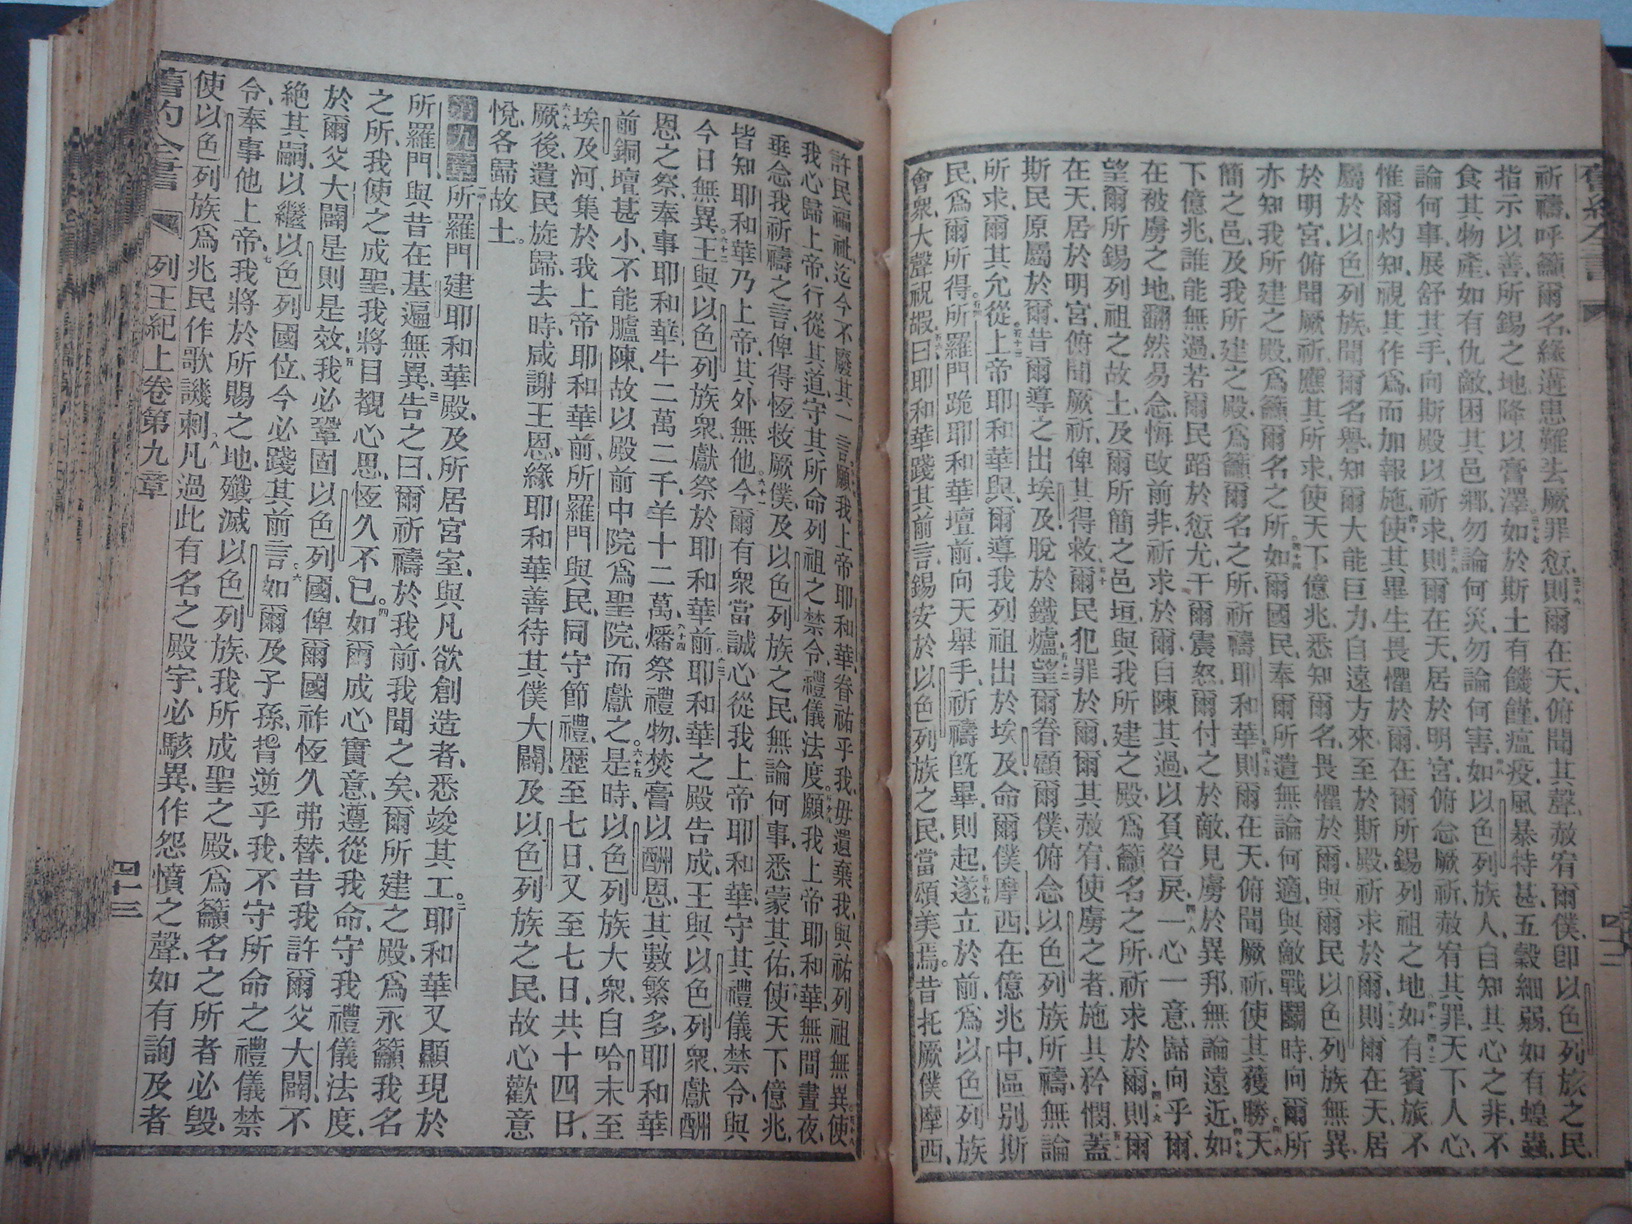 祈禱、呼籲爾名、緣遘患難去厥罪愆、則爾在天、俯聞其聲、赦宥爾僕、卽以色列族之民、
指示以善、所錫之地、降以膏澤、如於斯土、有饑饉、瘟疫、風暴特甚、五穀細弱、如有蝗蟲、
食其物產、如有仇敵、困其邑鄉、勿論何災、勿論何害、如以色列族人、自知其心之非、不
論何事、展舒其手、向斯殿以祈求、則爾在天、居於明宮、俯念厥祈、赦宥其罪、天下人心、
惟爾灼知、視其作爲、而加報施、使其畢生畏懼於爾、在爾所錫列祖之地、如有賓旅、不
屬於以色列族、聞爾名譽、知爾大能巨力、自遠方來、至於斯殿、祈求於爾、則爾在天、居
於明宮、俯聞厥祈、應其所求、使天下億兆、悉知爾名、畏懼於爾、與爾民以色列族無異、
亦知我所建之殿、爲籲爾名之所、如爾國民、奉爾所遣、無論何適、與敵戰鬬、時向爾所
簡之邑、及我所建之殿、爲籲爾名之所、祈禱耶和華、則爾在天、俯聞厥祈、使其獲勝、天
下億兆、誰能無過、若爾民蹈於愆尤、干爾震怒、爾付之於敵、見虜於異邦、無論遠近、如
在被虜之地、翻然易念、悔改前非、祈求於爾、自陳其過、以負咎戾、一心一意、歸向乎爾、
望爾所錫列祖之故土、及爾所簡之邑垣、與我所建之殿、爲籲名之所、祈求於爾、則爾
在天、居於明宮、俯聞厥祈、俾其得救、爾民犯罪於爾、爾其赦宥、使虜之者、施其矜憫、蓋
斯民原屬於爾、昔爾導之出埃及、脫於鐵爐、望爾眷顧爾僕、俯念以色列族所禱、無論
所求、爾其允從、上帝耶和華與、爾導我列祖出於埃及、命爾僕摩西、在億兆中、區別斯
民、爲爾所得、所羅門跪耶和華壇前、向天舉手、祈禱旣畢、則起、遂立於前、爲以色列族
會衆、大聲祝嘏、曰、耶和華踐其前言、錫安於以色列族之民、當頌美焉。昔托厥僕摩西、
許民福祉、迄今不廢其一言、願我上帝耶和華、眷祐乎我、毋遺棄我、與祐列祖無異、使
我心歸上帝、行從其道、守其所命列祖之禁令、禮儀、法度、願我上帝耶和華、無間晝夜、
垂念我祈禱之言、俾得恆救厥僕、及以色列族之民、無論何事、悉蒙其佑、使天下億兆、
皆知耶和華乃上帝、其外無他、今爾有衆、當誠心從我上帝耶和華、守其禮儀禁令、與
今日無異、王與以色列族衆、獻祭於耶和華前、耶和華之殿告成、王與以色列衆獻酬
恩之祭、奉事耶和華、牛二萬二千、羊十二萬、燔祭禮物、焚膏以酬恩、其數繁多、耶和華
前銅壇甚小、不能臚陳、故以殿前中院爲聖院、而獻之、是時、以色列族大衆、自哈末至
埃及河、集於我上帝耶和華前、所羅門與民、同守節禮、歷至七日、又至七日、共十四日、
厥後遣民旋歸、去時咸謝王恩、緣耶和華善待其僕大闢、及以色列族之民、故心歡意
悅、各歸故土。
第九章 所羅門建耶和華殿、及所居宮室、與凡欲創造者、悉竣其工。耶和華又顯現於
所羅門、與昔在基遍無異、告之曰、爾祈禱於我前、我聞之矣、爾所建之殿、爲永籲我名
之所、我使之成聖、我將目覩心思、恆久不已。如爾成心實意、遵從我命、守我禮儀法度、
於爾父大闢是則是效、我必鞏固以色列國、俾爾國祚恆久弗替、昔我許爾父大闢、不
絕其嗣、以繼以色列國位、今必踐其前言、如爾及子孫、背逆乎我、不守所命之禮儀禁
令、奉事他上帝、我將於所賜之地、殲滅以色列族、我所成聖之殿、爲籲名之所者必毀、
使以色列族爲兆民作歌譏刺、凡過此有名之殿宇、必駭異、作怨憤之聲、如有詢及者
舊約全書 列王紀上卷 第九章 四十三